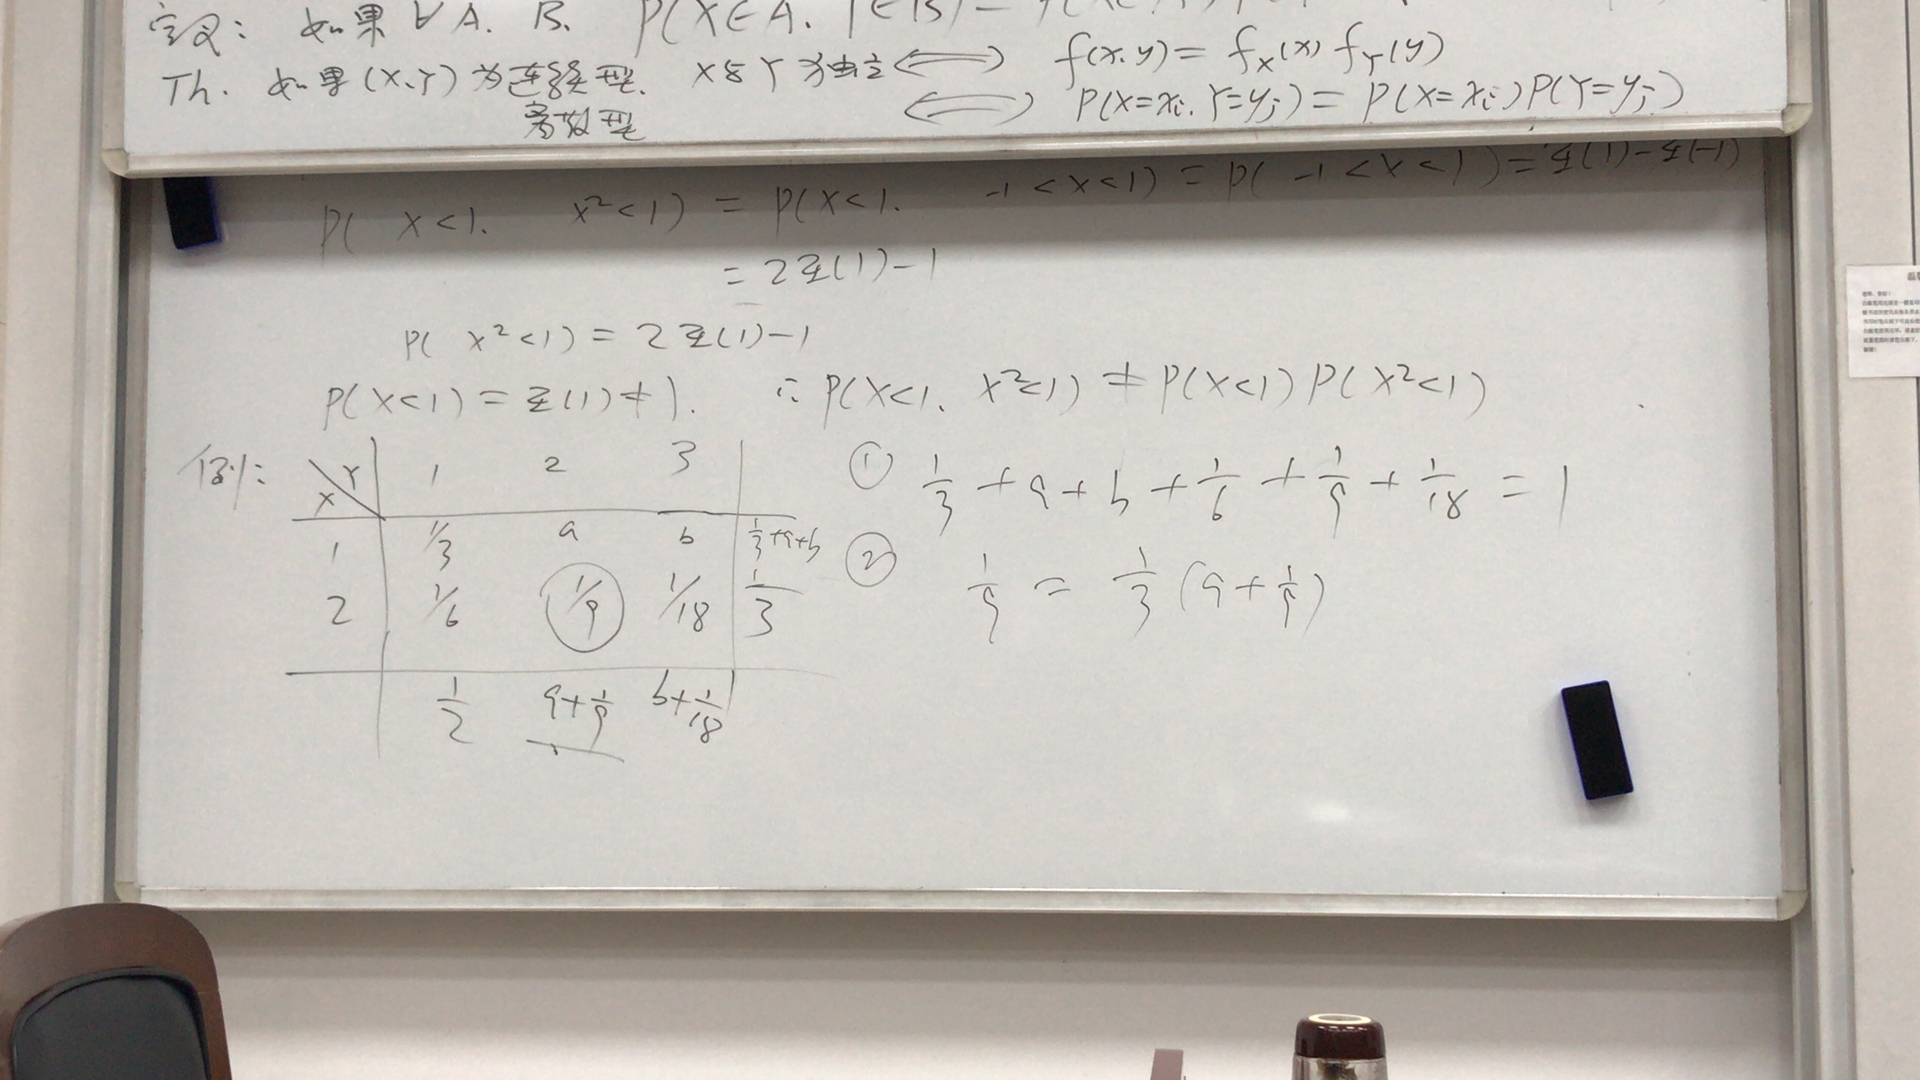 定义: 如果 ∀ A. B. P(X∈A.
Th. 如果 (X.Y) 为连续型. X与Y独立 ⟺ f(x.y) = f_X(x) f_Y(y)
离散型 ⟺ P(X=x_i. Y=y_j) = P(X=x_i) P(Y=y_j)
P( X<1. X²<1) = P(X<1. -1<X<1) = P( -1<X<1) = Φ(1)-Φ(-1)
= 2Φ(1)-1
P( X²<1) = 2Φ(1)-1
P(X<1) = Φ(1) ≠ 1. ∴ P(X<1. X²<1) ≠ P(X<1) P(X²<1)
例: X\Y 1 2 3
1 1/3 a b 1/3+a+b
2 1/6 1/9 1/18 1/3
1/2 a+1/9 b+1/18
① 1/3 + a + b + 1/6 + 1/9 + 1/18 = 1
② 1/9 = 1/3 (a + 1/9)